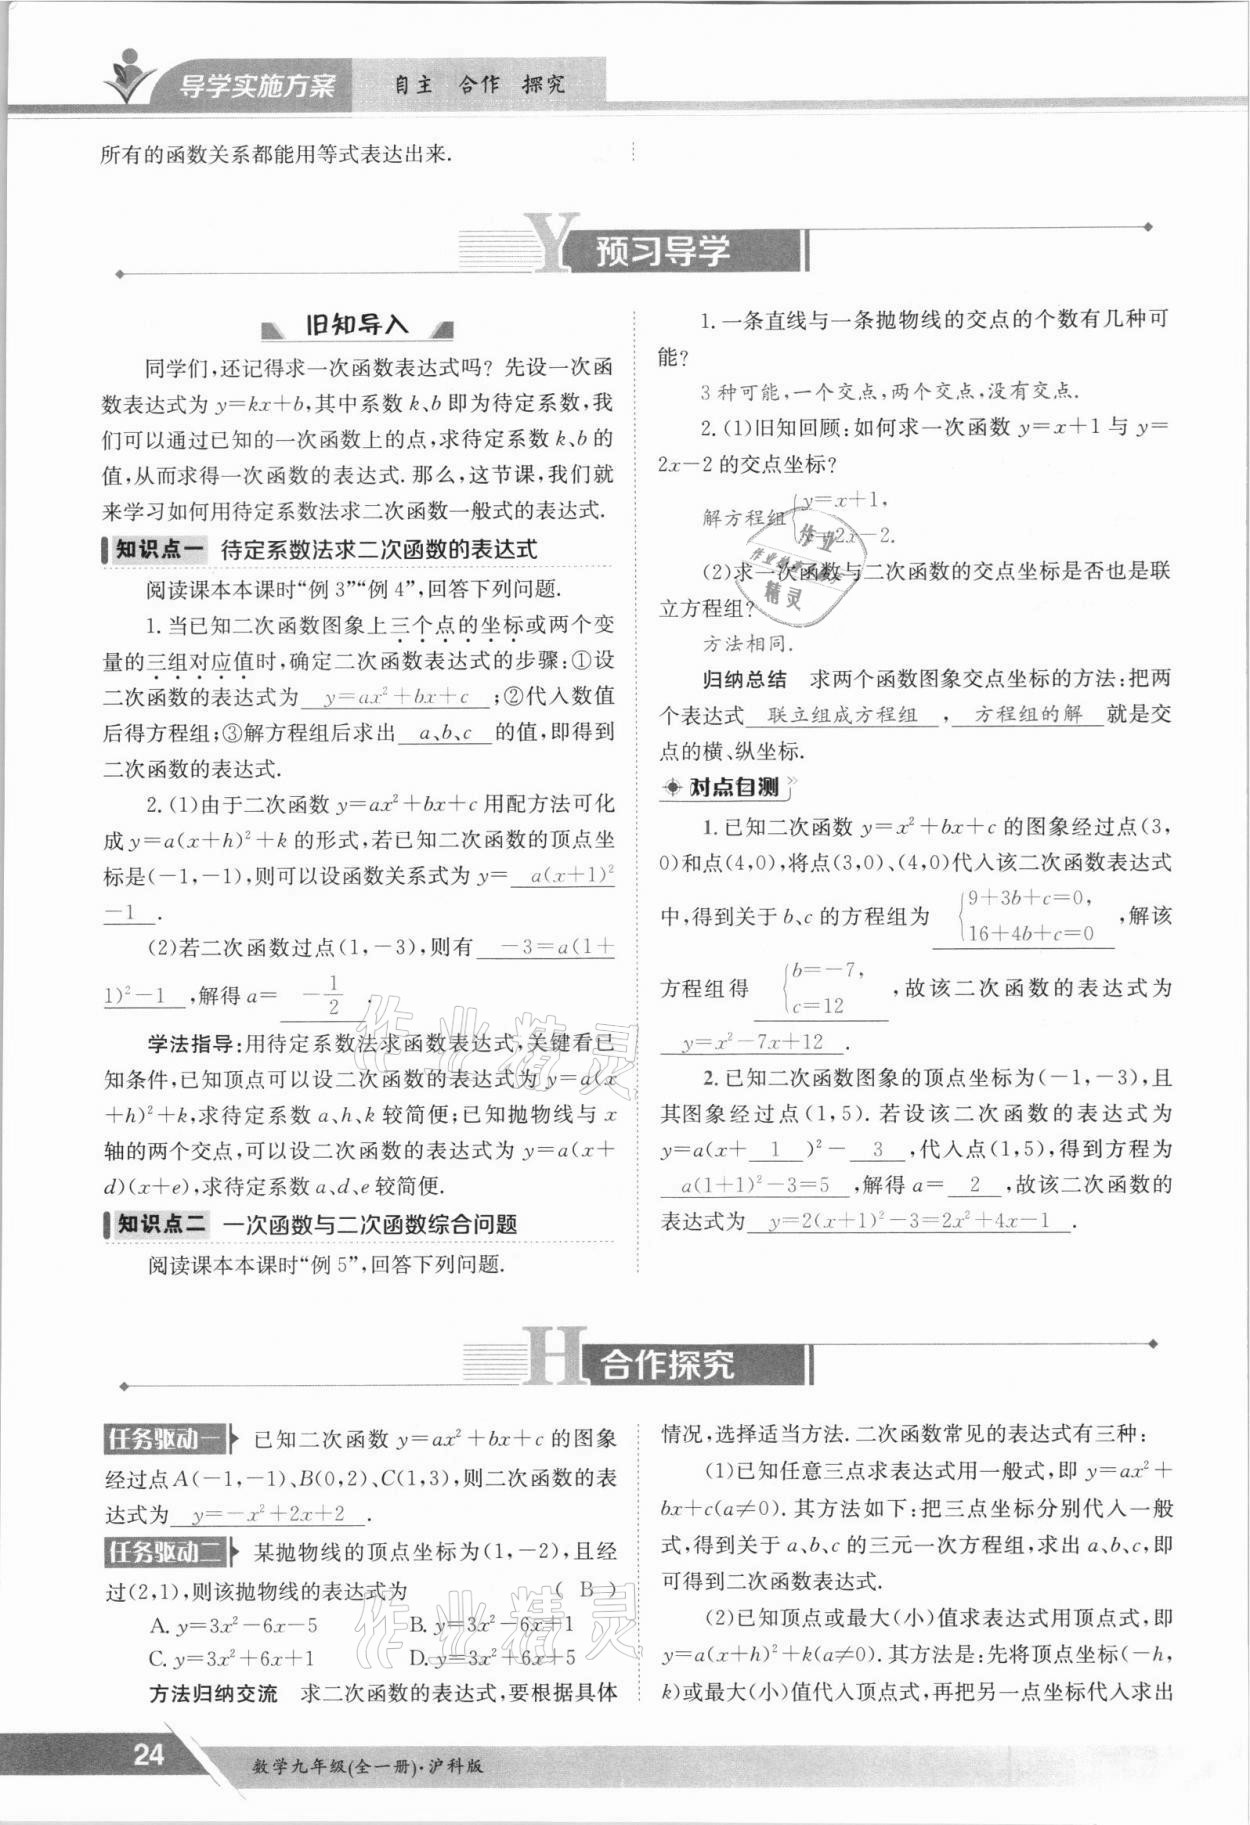 导学实施方案 自主 合作 探究
所有的函数关系都能用等式表达出来.
Y 预习导学
旧知导入
同学们,还记得求一次函数表达式吗? 先设一次函
数表达式为 y=kx+b,其中系数 k、b 即为待定系数,我
们可以通过已知的一次函数上的点,求待定系数 k、b 的
值,从而求得一次函数的表达式. 那么,这节课,我们就
来学习如何用待定系数法求二次函数一般式的表达式.
知识点一 待定系数法求二次函数的表达式
阅读课本本课时“例 3”“例 4”,回答下列问题.
1. 当已知二次函数图象上三个点的坐标或两个变
量的三组对应值时,确定二次函数表达式的步骤:①设
二次函数的表达式为 y=ax²+bx+c ;②代入数值
后得方程组;③解方程组后求出 a、b、c 的值,即得到
二次函数的表达式.
2. (1)由于二次函数 y=ax²+bx+c 用配方法可化
成 y=a(x+h)²+k 的形式,若已知二次函数的顶点坐
标是(-1,-1),则可以设函数关系式为 y= a(x+1)²
-1 .
(2)若二次函数过点(1,-3),则有 -3=a(1+
1)²-1 ,解得 a= -1/2 .
学法指导:用待定系数法求函数表达式,关键看已
知条件,已知顶点可以设二次函数的表达式为 y=a(x
+h)²+k,求待定系数 a、h、k 较简便;已知抛物线与 x
轴的两个交点,可以设二次函数的表达式为 y=a(x+
d)(x+e),求待定系数 a、d、e 较简便.
知识点二 一次函数与二次函数综合问题
阅读课本本课时“例 5”,回答下列问题.
1. 一条直线与一条抛物线的交点的个数有几种可
能?
3 种可能,一个交点,两个交点,没有交点.
2. (1)旧知回顾:如何求一次函数 y=x+1 与 y=
2x-2 的交点坐标?
解方程组{y=x+1,
y=2x-2.
(2)求一次函数与二次函数的交点坐标是否也是联
立方程组?
方法相同.
归纳总结 求两个函数图象交点坐标的方法:把两
个表达式 联立组成方程组 , 方程组的解 就是交
点的横、纵坐标.
对点自测
1. 已知二次函数 y=x²+bx+c 的图象经过点(3,
0)和点(4,0),将点(3,0)、(4,0)代入该二次函数表达式
中,得到关于 b、c 的方程组为 {9+3b+c=0,
16+4b+c=0 ,解该
方程组得 {b=-7,
c=12 ,故该二次函数的表达式为
y=x²-7x+12 .
2. 已知二次函数图象的顶点坐标为(-1,-3),且
其图象经过点(1,5). 若设该二次函数的表达式为
y=a(x+ 1 )²- 3 ,代入点(1,5),得到方程为
a(1+1)²-3=5 ,解得 a= 2 ,故该二次函数的
表达式为 y=2(x+1)²-3=2x²+4x-1 .
作业精灵
H 合作探究
任务驱动一 已知二次函数 y=ax²+bx+c 的图象
经过点 A(-1,-1)、B(0,2)、C(1,3),则二次函数的表
达式为 y=-x²+2x+2 .
任务驱动二 某抛物线的顶点坐标为(1,-2),且经
过(2,1),则该抛物线的表达式为 ( B )
A. y=3x²-6x-5 B. y=3x²-6x+1
C. y=3x²+6x+1 D. y=3x²+6x+5
方法归纳交流 求二次函数的表达式,要根据具体
情况,选择适当方法. 二次函数常见的表达式有三种:
(1)已知任意三点求表达式用一般式,即 y=ax²+
bx+c(a≠0). 其方法如下:把三点坐标分别代入一般
式,得到关于 a、b、c 的三元一次方程组,求出 a、b、c,即
可得到二次函数表达式.
(2)已知顶点或最大(小)值求表达式用顶点式,即
y=a(x+h)²+k(a≠0). 其方法是:先将顶点坐标(-h,
k)或最大(小)值代入顶点式,再把另一点坐标代入求出
作业精灵
24 数学九年级(全一册)·沪科版